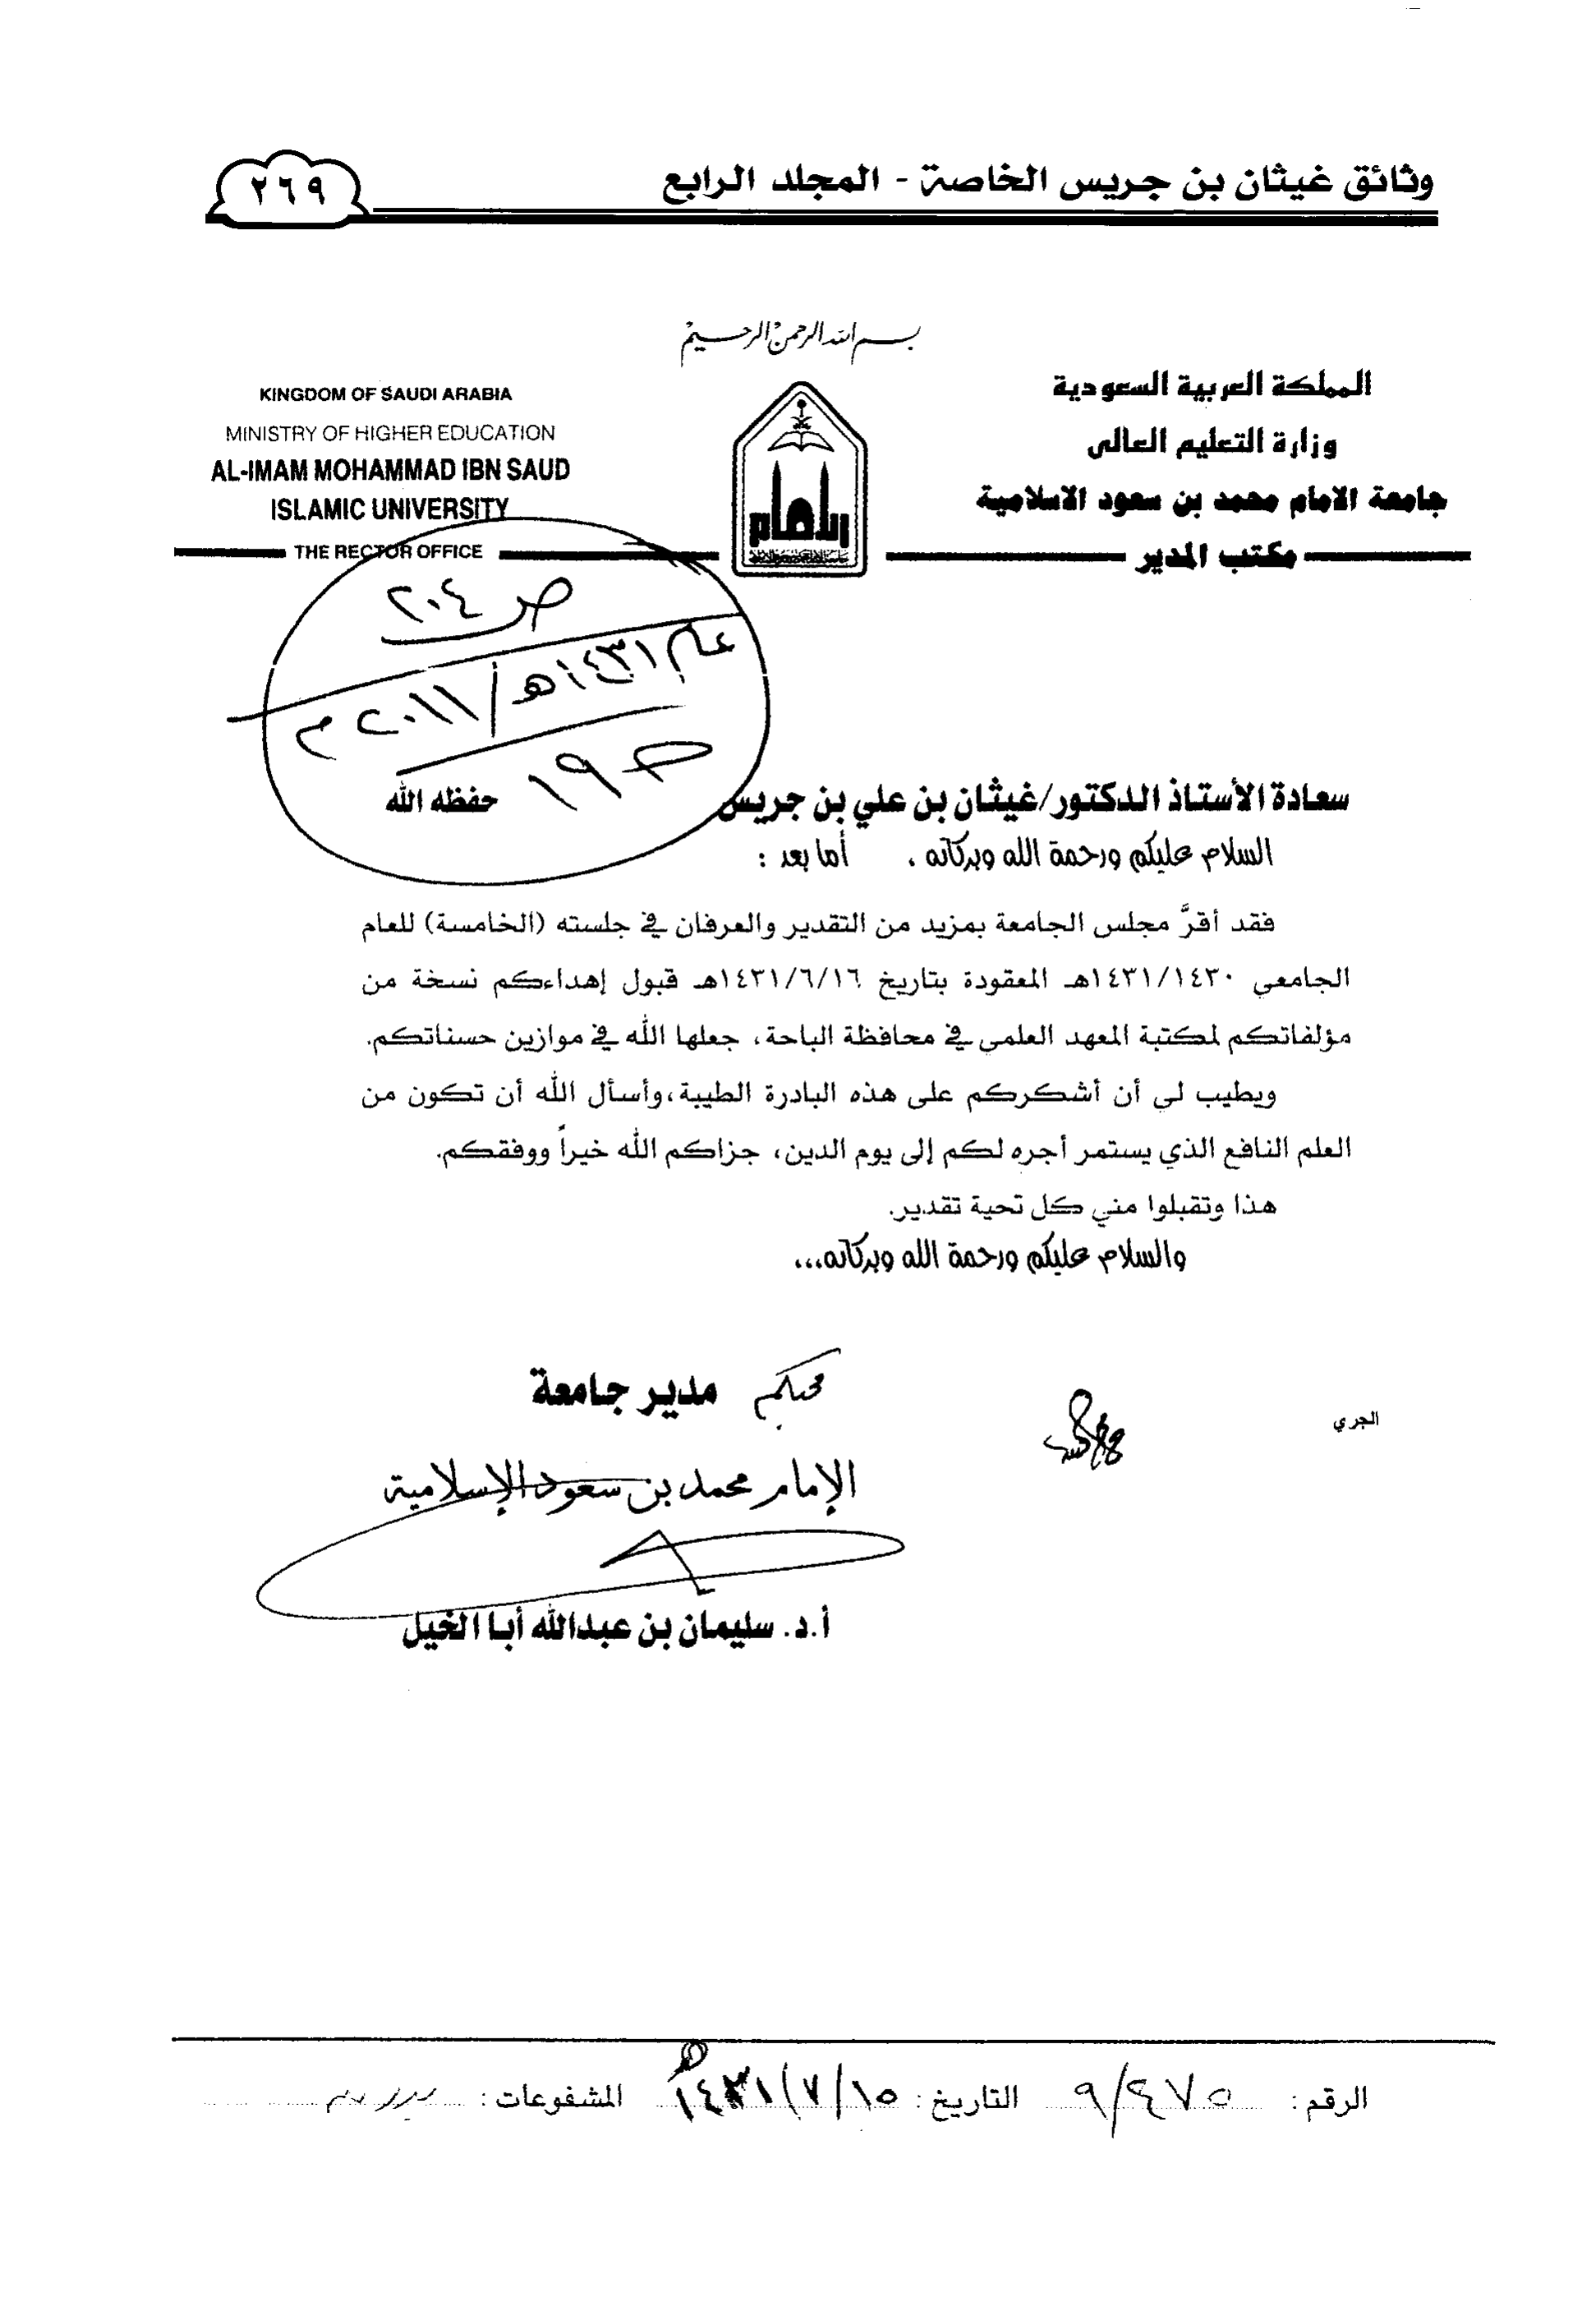 وثائق غيثان بن جريس الخاصة - المجلد الرابع
٢٦٩
بسم الله الرحمن الرحيم
المملكة العربية السعودية
وزارة التعليم العالي
جامعة الامام محمد بن سعود الاسلامية
مكتب المدير
KINGDOM OF SAUDI ARABIA
MINISTRY OF HIGHER EDUCATION
AL-IMAM MOHAMMAD IBN SAUD
ISLAMIC UNIVERSITY
THE RECTOR OFFICE
ص ٢٠٤
عام ١٤٣١هـ/٢٠١١م
ح ١٩
سعادة الأستاذ الدكتور/غيثان بن علي بن جريس حفظه الله
السلام عليكم ورحمة الله وبركاته ، أما بعد :
فقد أقرَّ مجلس الجامعة بمزيد من التقدير والعرفان في جلسته (الخامسة) للعام
الجامعي ١٤٣١/١٤٣٠هـ المعقودة بتاريخ ١٤٣١/٦/١٦هـ قبول إهداءكم نسخة من
مؤلفاتكم لمكتبة المعهد العلمي في محافظة الباحة، جعلها الله في موازين حسناتكم.
ويطيب لي أن أشكركم على هذه البادرة الطيبة،وأسأل الله أن تكون من
العلم النافع الذي يستمر أجره لكم إلى يوم الدين، جزاكم الله خيراً ووفقكم.
هذا وتقبلوا مني كل تحية تقدير.
والسلام عليكم ورحمة الله وبركاته،،،
محبكم مدير جامعة
الجري
الإمام محمد بن سعود الإسلامية
أ.د. سليمان بن عبدالله أبا الخيل
الرقم: ٩/٤٧٥ التاريخ: ١٤٣١/٧/١٥هـ المشفوعات: